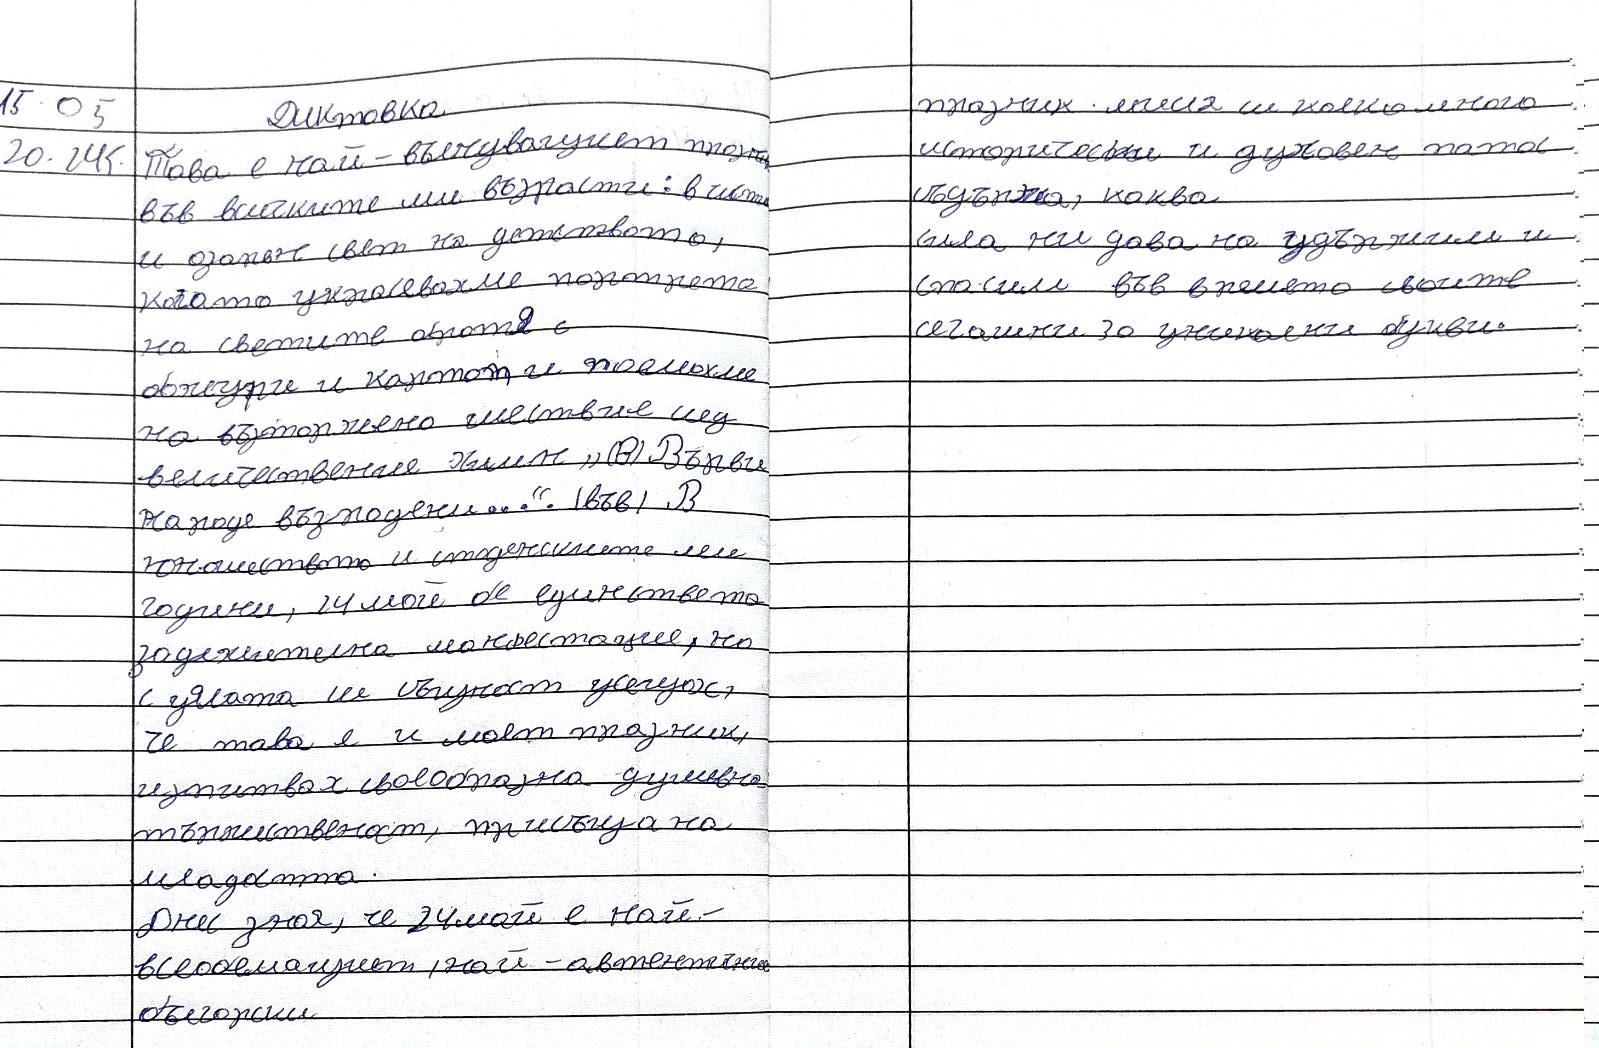 15.05
20.24г.
Диктовка
Това е най-вълнуващият празник
във всичките ми възрасти: в чистия
и озарен свят на детството,
когато украсявахме портрета
на светите братя с
обкични и картони и поемахме
на възторжено шествие след
величествения химн „(В) Върви
народе възродени...“. (във) В
юношеството и студенските ми
години, 24 май бе единствета
задължителна манифестация, но
с цялата си същност усещах,
че това е и моят празник,
изпитвах своеобразна душевна
тържественост, присъща на
младостта.
Днес зная, че 24 май е най-
всеобемащият, най-автентичния
български
празник. мисля си колко много
исторически и духовен патос
съдържа, каква
сила ни дава на удържим и
спасим във времето своите
сегашни за уникални букви.